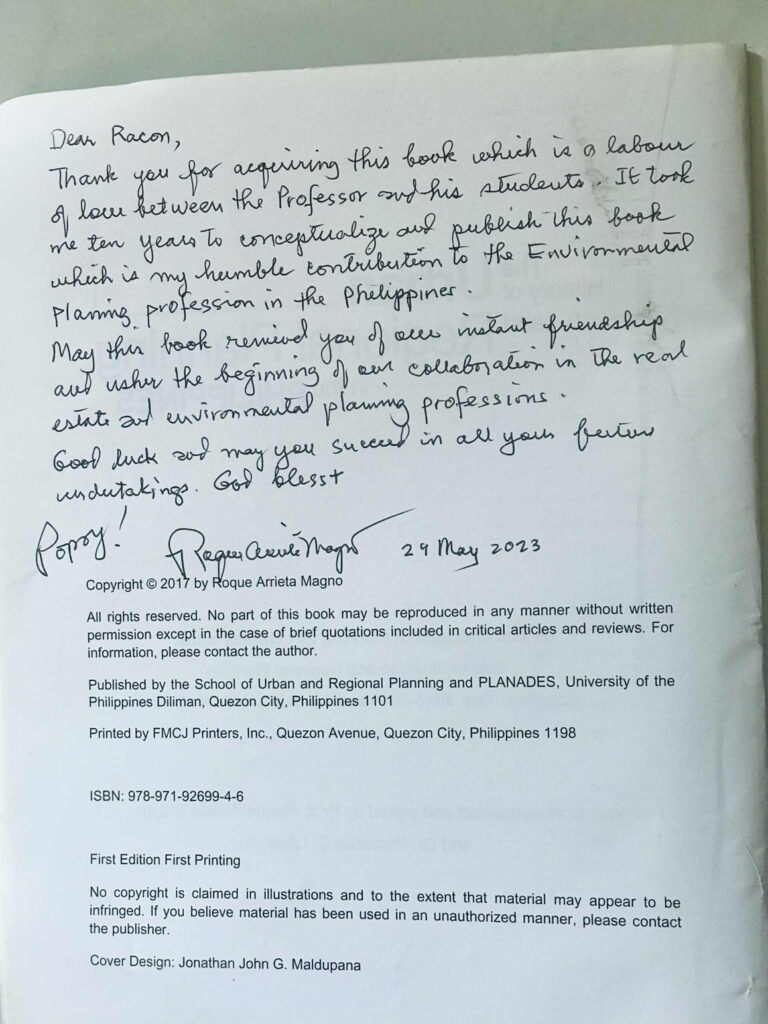 Dear Racon,
Thank you for acquiring this book which is a labour
of love between the Professor and his students. It took
me ten years to conceptualize and publish this book
which is my humble contribution to the Environmental
planning profession in the Philippines.
May this book remind you of our instant friendship
and usher the beginning of our collaboration in the real
estate and environmental planning professions.
Good luck and may you succeed in all your future
undertakings. God bless+
Popoy! Roque Arrieta Magno 29 May 2023
Copyright © 2017 by Roque Arrieta Magno
All rights reserved. No part of this book may be reproduced in any manner without written
permission except in the case of brief quotations included in critical articles and reviews. For
information, please contact the author.
Published by the School of Urban and Regional Planning and PLANADES, University of the
Philippines Diliman, Quezon City, Philippines 1101
Printed by FMCJ Printers, Inc., Quezon Avenue, Quezon City, Philippines 1198
ISBN: 978-971-92699-4-6
First Edition First Printing
No copyright is claimed in illustrations and to the extent that material may appear to be
infringed. If you believe material has been used in an unauthorized manner, please contact
the publisher.
Cover Design: Jonathan John G. Maldupana